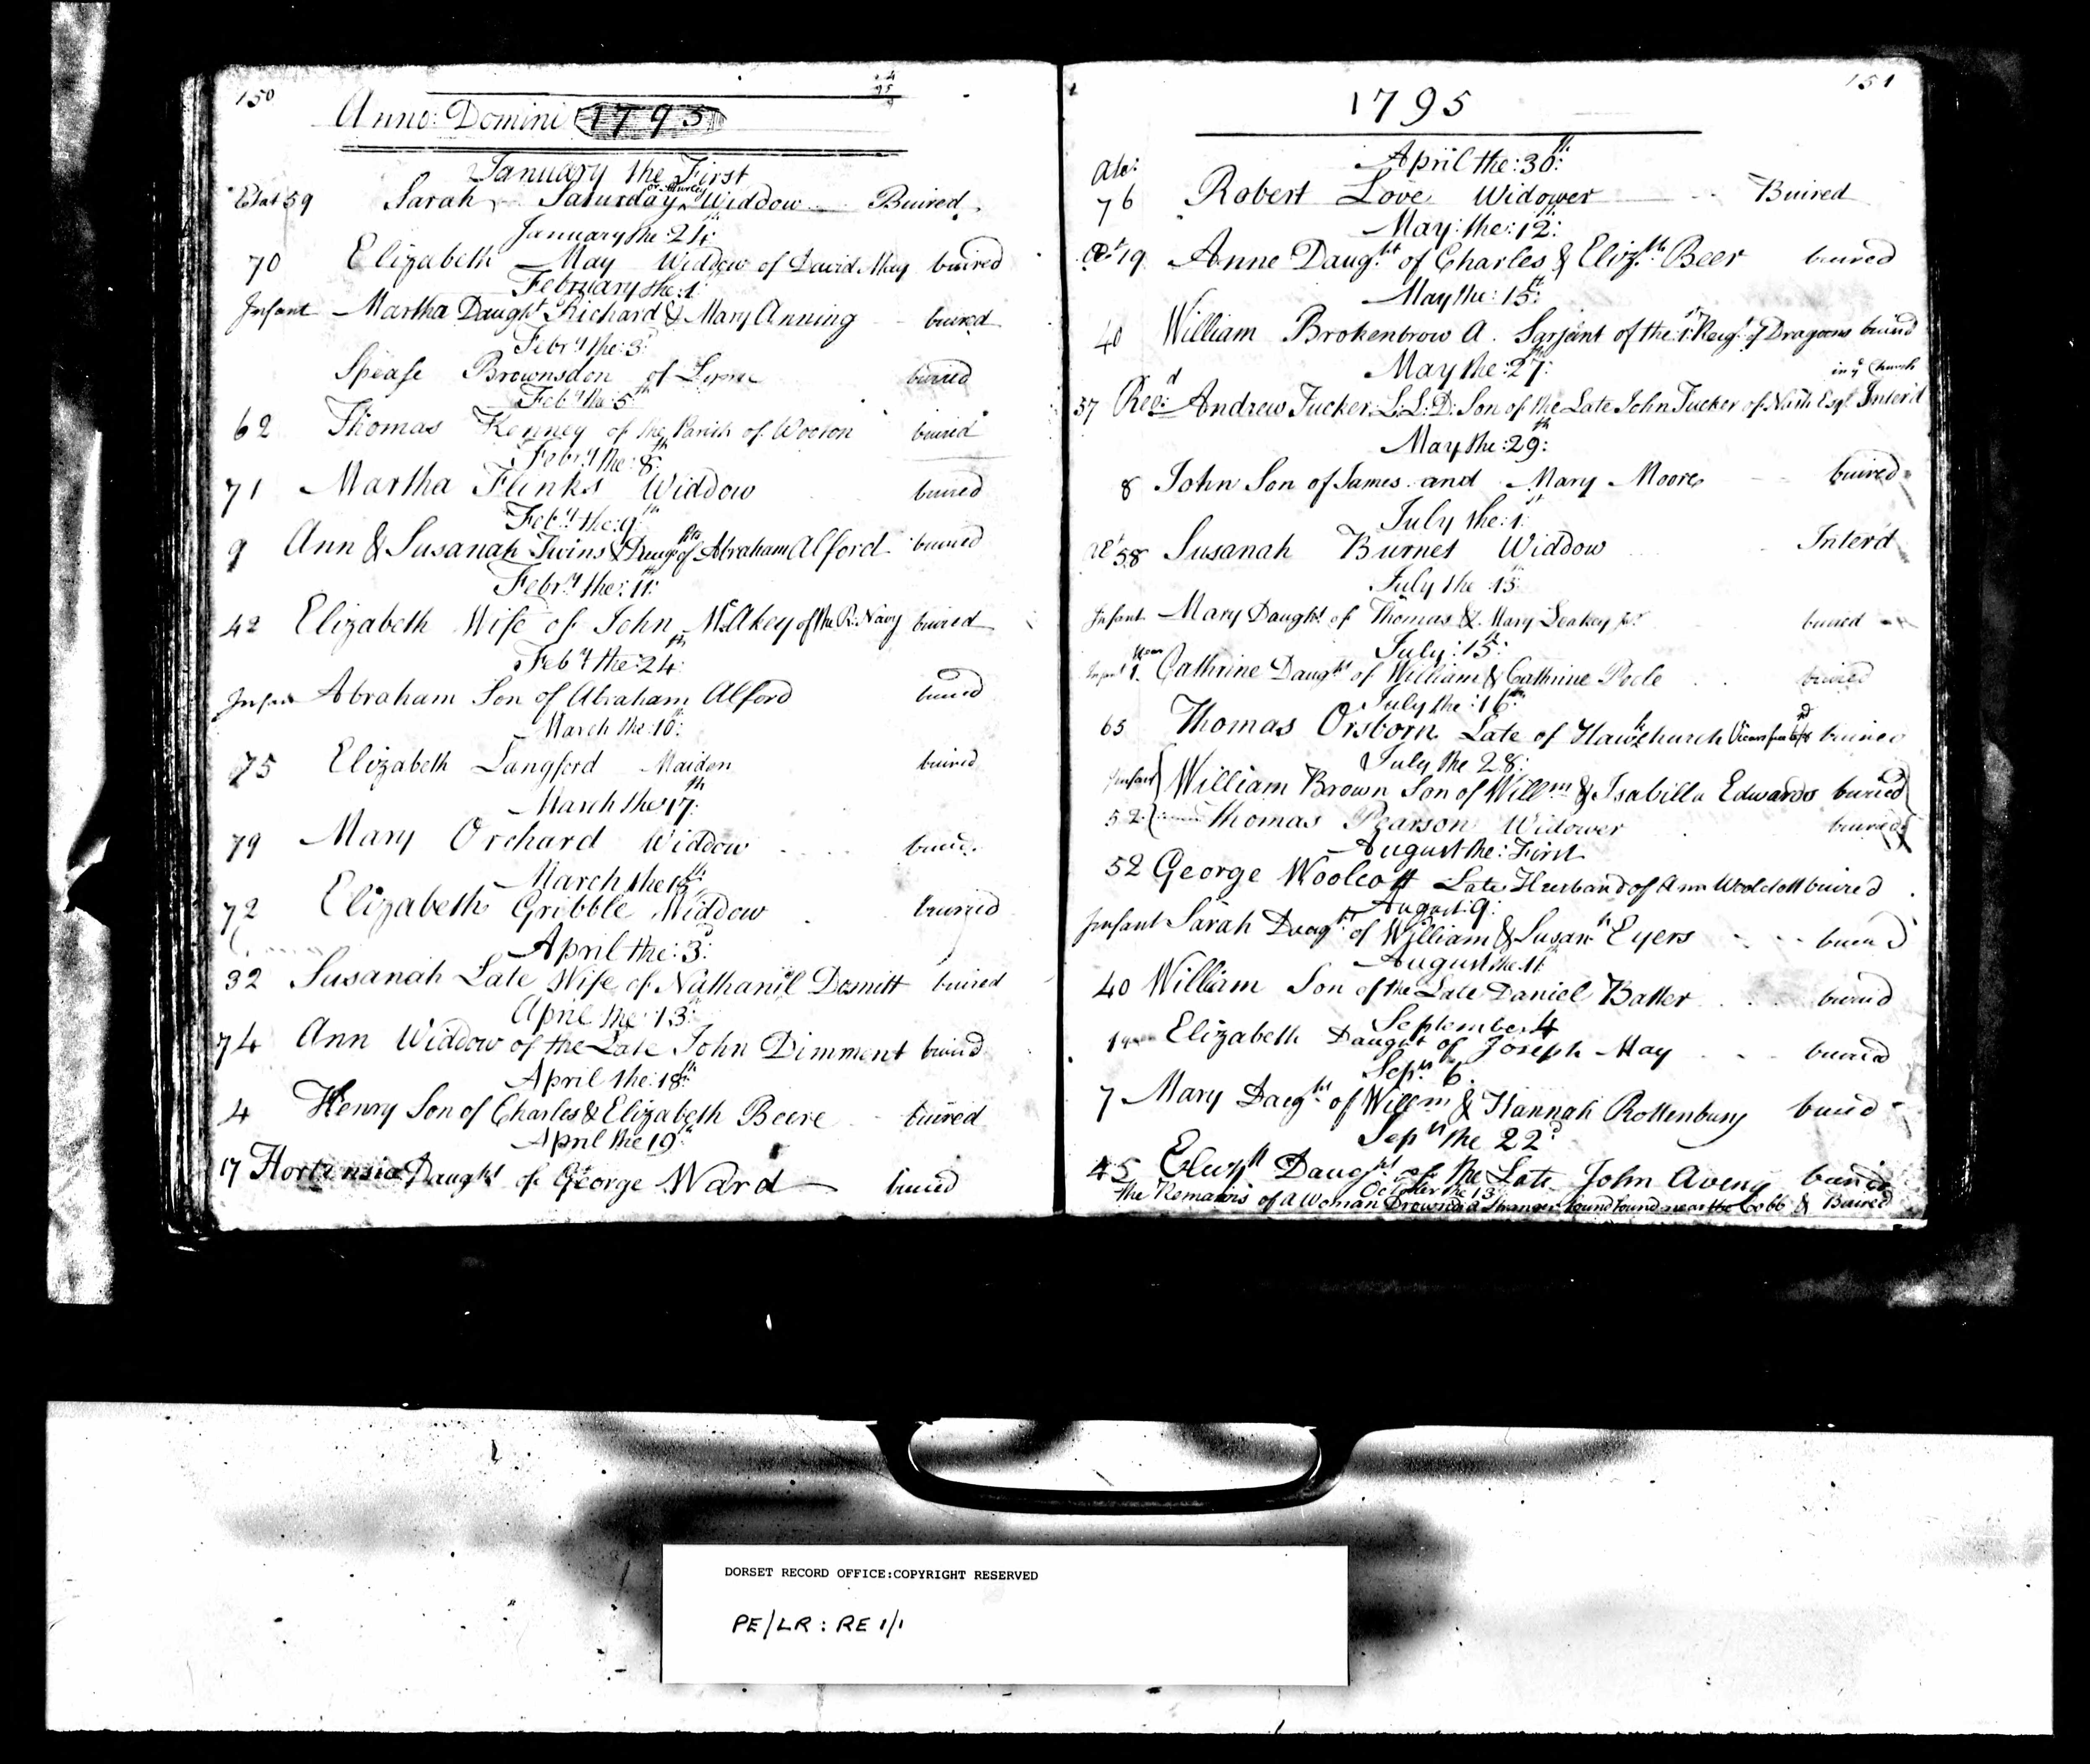 150
Anno: Domini 1795
January the First
Etat 59 Sarah Saturday or Hurley Widdow Buired
January the: 24:
70 Elizabeth May Widdow of David May buired
February the: 1:
Infant Martha Daught Richard & Mary Anning buired
Febry the: 3d
Brownsdon of buired
Feby the: 5th
62 Thomas Kenney of the Parish of Wooton buired
Febry the: 8th
71 Martha Flinks Widdow buired
Feby the: 9th
9 Ann & Susanah Twins & Daugrs of Abraham Alford buired
Febry the: 11th
42 Elizabeth Wife of John McAkey of the R: Navy buired
Feby the: 24th
Infant Abraham Son of Abraham Alford buried
March the: 10:
75 Elizabeth Langford Maiden buired
March the 17th
79 Mary Orchard Widdow buired
March the 18th
72 Elizabeth Gribble Widdow buried
April the: 3d:
32 Susanah Late Wife of Nathanil Domett buired
April the: 13:
74 Ann Widdow of the Late John Dimment buired
April the: 18th
4 Henry Son of Charles & Elizabeth Beere buired
April the 19th
17 Hortensia Daught of George Ward buried
151
1795
April the: 30th:
Ate:
76 Robert Love Widower Buired
May: the: 12:
Aet 19 Anne Daught of Charles & Elizth Beer buired
May the: 15th
40 William Brokenbrow A. Sarjant of the 1st Reigt of Dragoons buired
May the: 27th: in ye Church
57 Revd Andrew Tucker L:L:D: Son of the Late John Tucker of Esqr Inter'd
May the: 29th:
8 John Son of James and Mary Moore buired
July the: 1st
AEt 58 Susanah Burnet Widdow Inter'd
July the 15
Infant Mary Daught of Thomas & Mary Leakey Jr buried
July: 15th:
Infant 1 Year Cathrine Daught of William & Cathrine Poole buired
July the: 16th
65 Thomas Orsborn Late of Hawkchurch buired
July the 28:
Infant William Brown Son of Willm & Isabilla Edwards buried
52 Thomas Pearson Widower buired
August the: First
52 George Woolcott Late Husband of Ann Woolcott buired
August: 9:
Infant Sarah Daught of William & Susanh Eyers buried
August the 11
40 William Son of the Late Daniel Batter buried
September 4
Elizabeth Daught of Joseph May buried
Sepr 6th
7 Mary Daught of Willm & Hannah Rottenbury buried
Sepr the 22d
45 Elizth Daught of the Late John Aveny buried
October the 13
the Remains of a Woman Drowned a Stranger found near the Cobb & Buired
DORSET RECORD OFFICE:COPYRIGHT RESERVED
PE/LR : RE 1/1